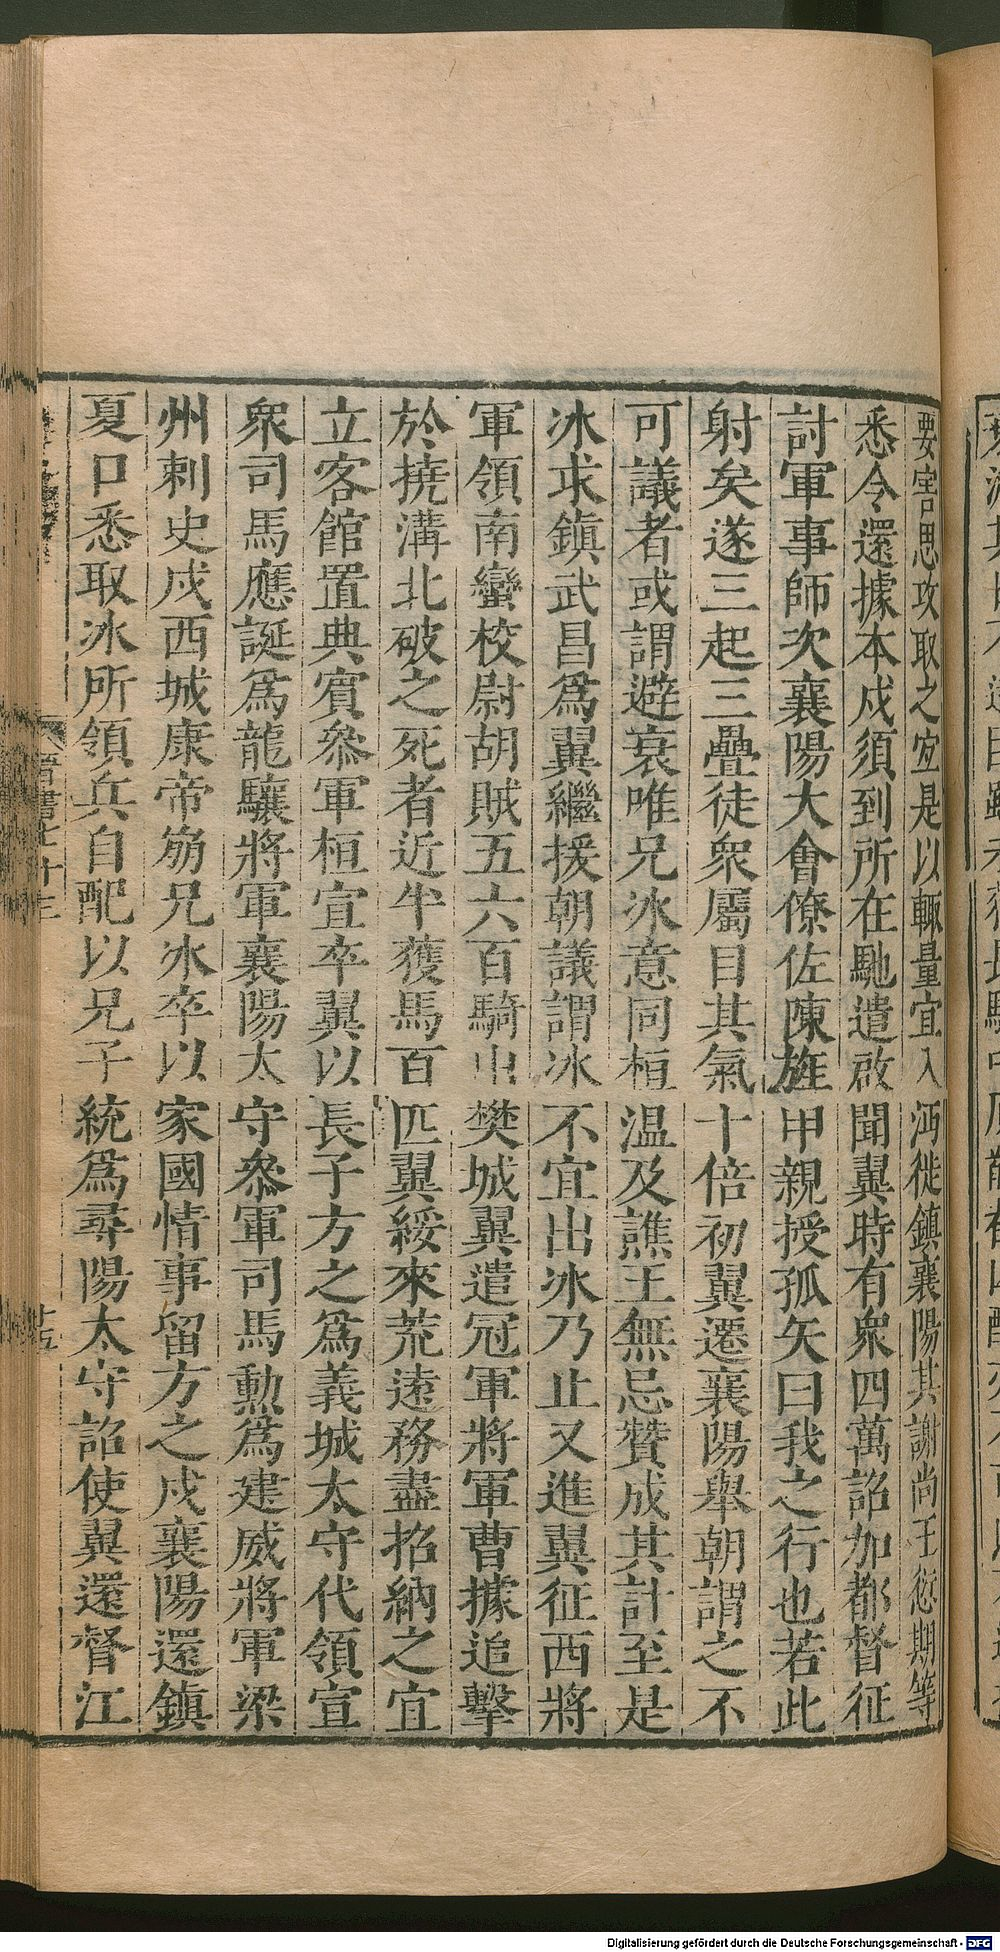 要害思攻取之宜是以輒量宜入沔徙鎮襄陽其謝尚王愆期等
悉令還據本戍須到所在馳遣啟聞翼時有衆四萬詔加都督征
討軍事師次襄陽大會僚佐陳旌甲親授孤矢曰我之行也若此
射矣遂三起三疊徒衆屬目其氣十倍初翼遷襄陽舉朝謂之不
可議者或謂避衰唯兄冰意同桓温及譙王無忌贊成其計至是
冰求鎮武昌爲翼繼援朝議謂冰不宜出冰乃止又進翼征西將
軍領南蠻校尉胡賊五六百騎出樊城翼遣冠軍將軍曹據追擊
於撓溝北破之死者近半獲馬百匹翼綏來荒遠務盡招納之宜
立客館置典賓參軍桓宣卒翼以長子方之爲義城太守代領宣
衆司馬應誕爲龍驤將軍襄陽太守參軍司馬勳爲建威將軍梁
州刺史戍西城康帝崩兄冰卒以家國情事留方之戍襄陽還鎮
夏口悉取冰所領兵自配以兄子統爲尋陽太守詔使翼還督江
晉書七十三
十五
Digitalisierung gefördert durch die Deutsche Forschungsgemeinschaft - DFG